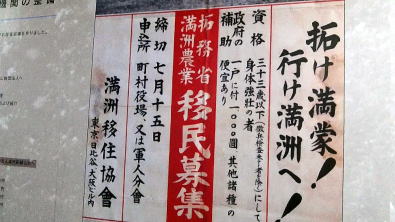 機関の整備
拓け満蒙!
行け満洲へ!
資格 三十三歳以下(徴兵検査未了者ヲ除ク)にして
身体強壮の者
政府の補助 一戸に付一〇〇〇圓 其他諸種の
便宜あり
拓務省
満洲農業
移民募集
締切 七月十五日
申込所 町村役場 又は軍人分會
満洲移住協會
東京日比谷 大阪ビル内